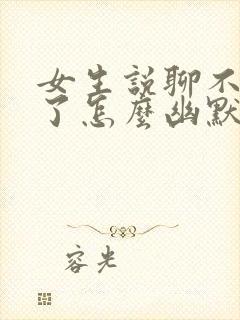 女生説聊不
了怎麼幽默
容光